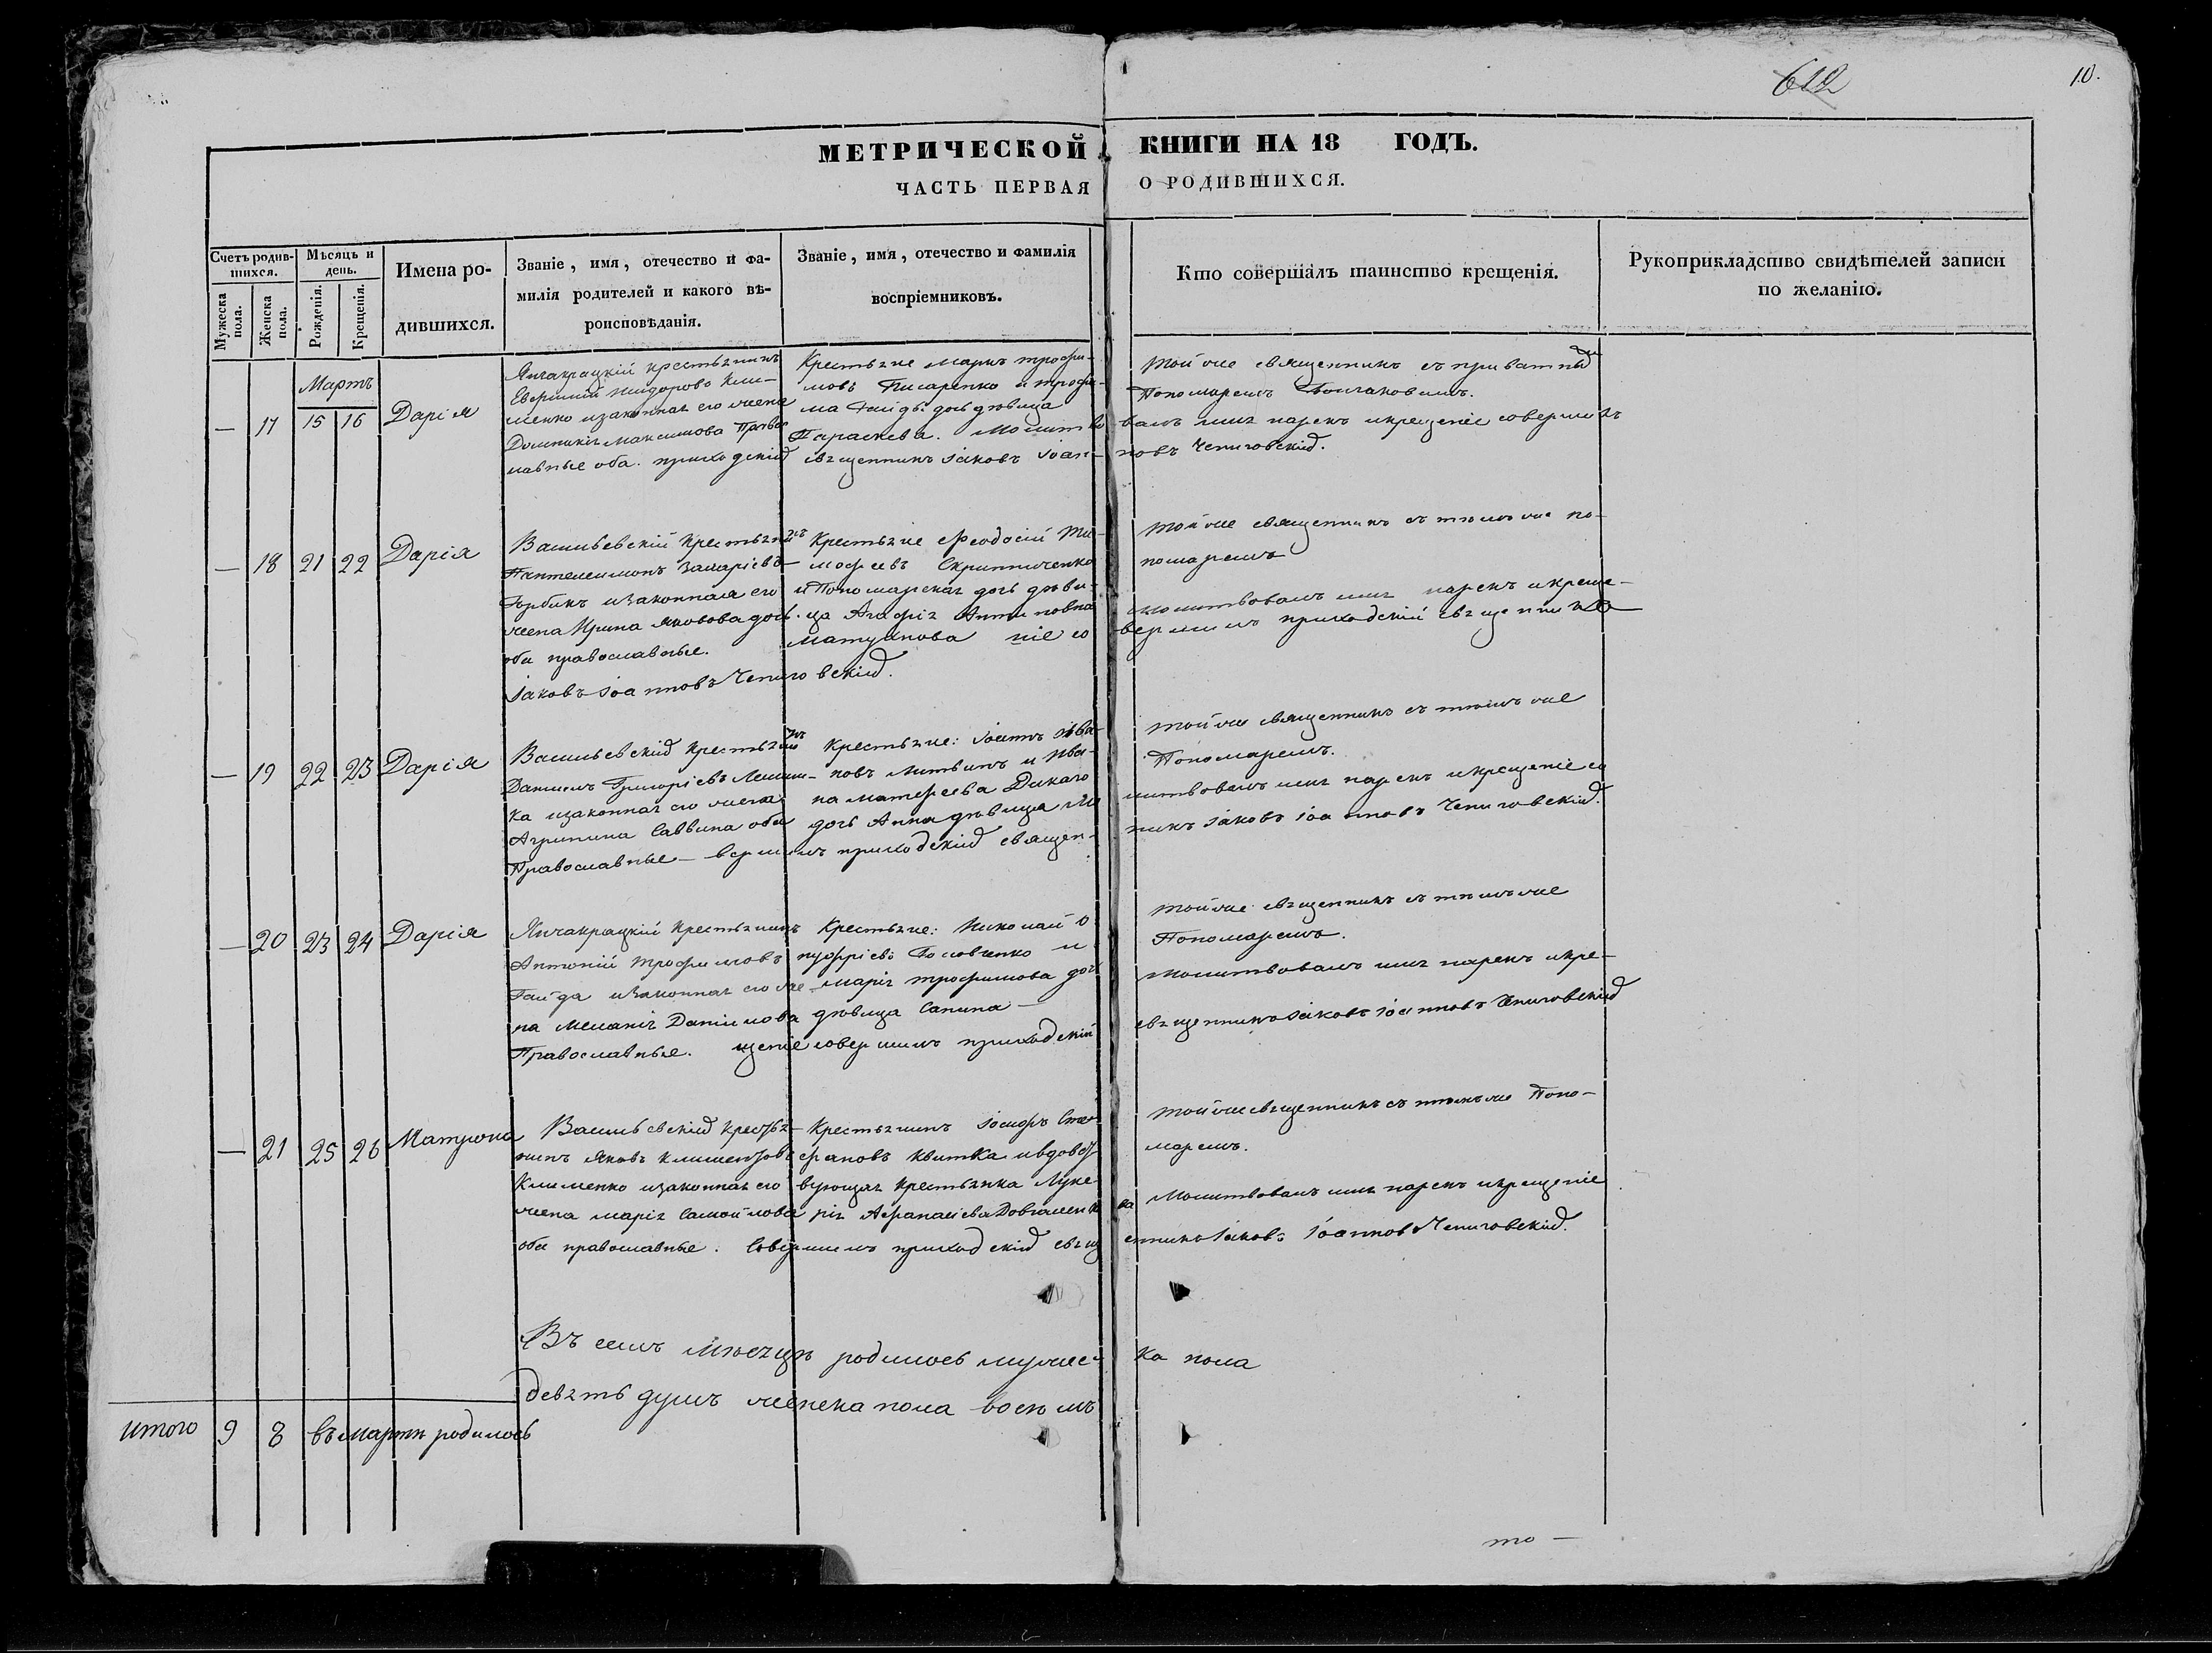 612
10.
МЕТРИЧЕСКОЙ КНИГИ НА 18 ГОДЪ.
ЧАСТЬ ПЕРВАЯ О РОДИВШИХСЯ.
Счетъ родив-
шихся.
Мужеска пола.
Женска пола.
Мѣсяцъ и
день.
Рожденія.
Крещенія.
Имена ро-
дившихся.
Званіе, имя, отечество и фа-
милія родителей и какого вѣ-
роисповѣданія.
Званіе, имя, отечество и фамилія
воспріемниковъ.
Кто совершалъ таинство крещенія.
Рукоприкладство свидѣтелей записи
по желанію.
Мартъ
— 17 15 16 Дарія
Янчакрацкій крестьянинъ
Кли-
менко изаконная его жена
Домникія Максимова Правос
лавные оба. приходскій
Крестьяне Маркъ трофи-
мовъ Писаренко и трофи-
ма Гайды дочь дѣвица
Параскева. Молитво
священникъ Іаковъ Іоан-
той же священникъ съ приватны
Пономаремъ
валъ имя нарекъ икрещеніе совершилъ
новъ Чепиговскій.
— 18 21 22 Дарія
Васильевскій Крестьянинъ
Пантелеимонъ Захаріевъ
Горбикъ изаконная его
жена Ирина яковова доч.
оба православные.
Іаковъ Іоанновъ Чепиговскій.
Крестьяне Феодосій Ти-
мофеевъ Скрипниченко
и Пономарская дочь дѣви-
ца Агафія Антиповна
Матушова ніе со
той же священникъ съ тѣмъ же по-
номаремъ
молитвовалъ имя нарекъ икреще-
вершилъ приходскій священникъ
— 19 22 23 Дарія
Васильевскій Крестьянинъ
Даниилъ Григоріевъ
ка изаконная его жена
Агрипина Саввина оба
Православные — вершилъ приходскій священ-
Крестьяне: Іоаннъ Ива-
новъ Литвинъ и Ива-
на Матфеева Дикаго
дочь Анна дѣвица Мо
той же священникъ съ тѣмъ же
Пономаремъ.
литвовалъ имя нарекъ икрещеніе со
никъ Іаковъ Іоанновъ Чепиговскій.
— 20 23 24 Дарія
Янчакрацкій Крестьянинъ
Антоній трофимовъ
Гайда изаконная его же-
на Меланія Даніилова
Православные. щеніе совершилъ приходскій
Крестьяне: Николай О
нуфріевъ Головченко и
Марія трофимова дочь
дѣвица Сапина —
той же священникъ съ тѣмъ же
Пономаремъ.
молитвовалъ имя нарекъ икре-
священникъ Іаковъ Іоанновъ Чепиговскій
— 21 25 26 Матрона
Васильевскій Крестья-
нинъ Яковъ Климентовъ
Клименко изаконная его
жена Марія Самойлова
оба православные. Совершилъ приходскій свящ
Крестьянинъ Іосифъ Сте-
фановъ Квитка ивдовст
вующая Крестьянка Луке-
рія Афанасіева Довгаленк
ва
той же священникъ съ тѣмъ же Поно-
маремъ.
Молитвовалъ имя нарекъ икрещеніе
енникъ Іаковъ Іоанновъ Чепиговскій.
Въ семъ мѣсяцѣ родилось мужес-ка пола
девять душъ женска пола восемъ
итого 9 8 въ Мартѣ родилось
то —